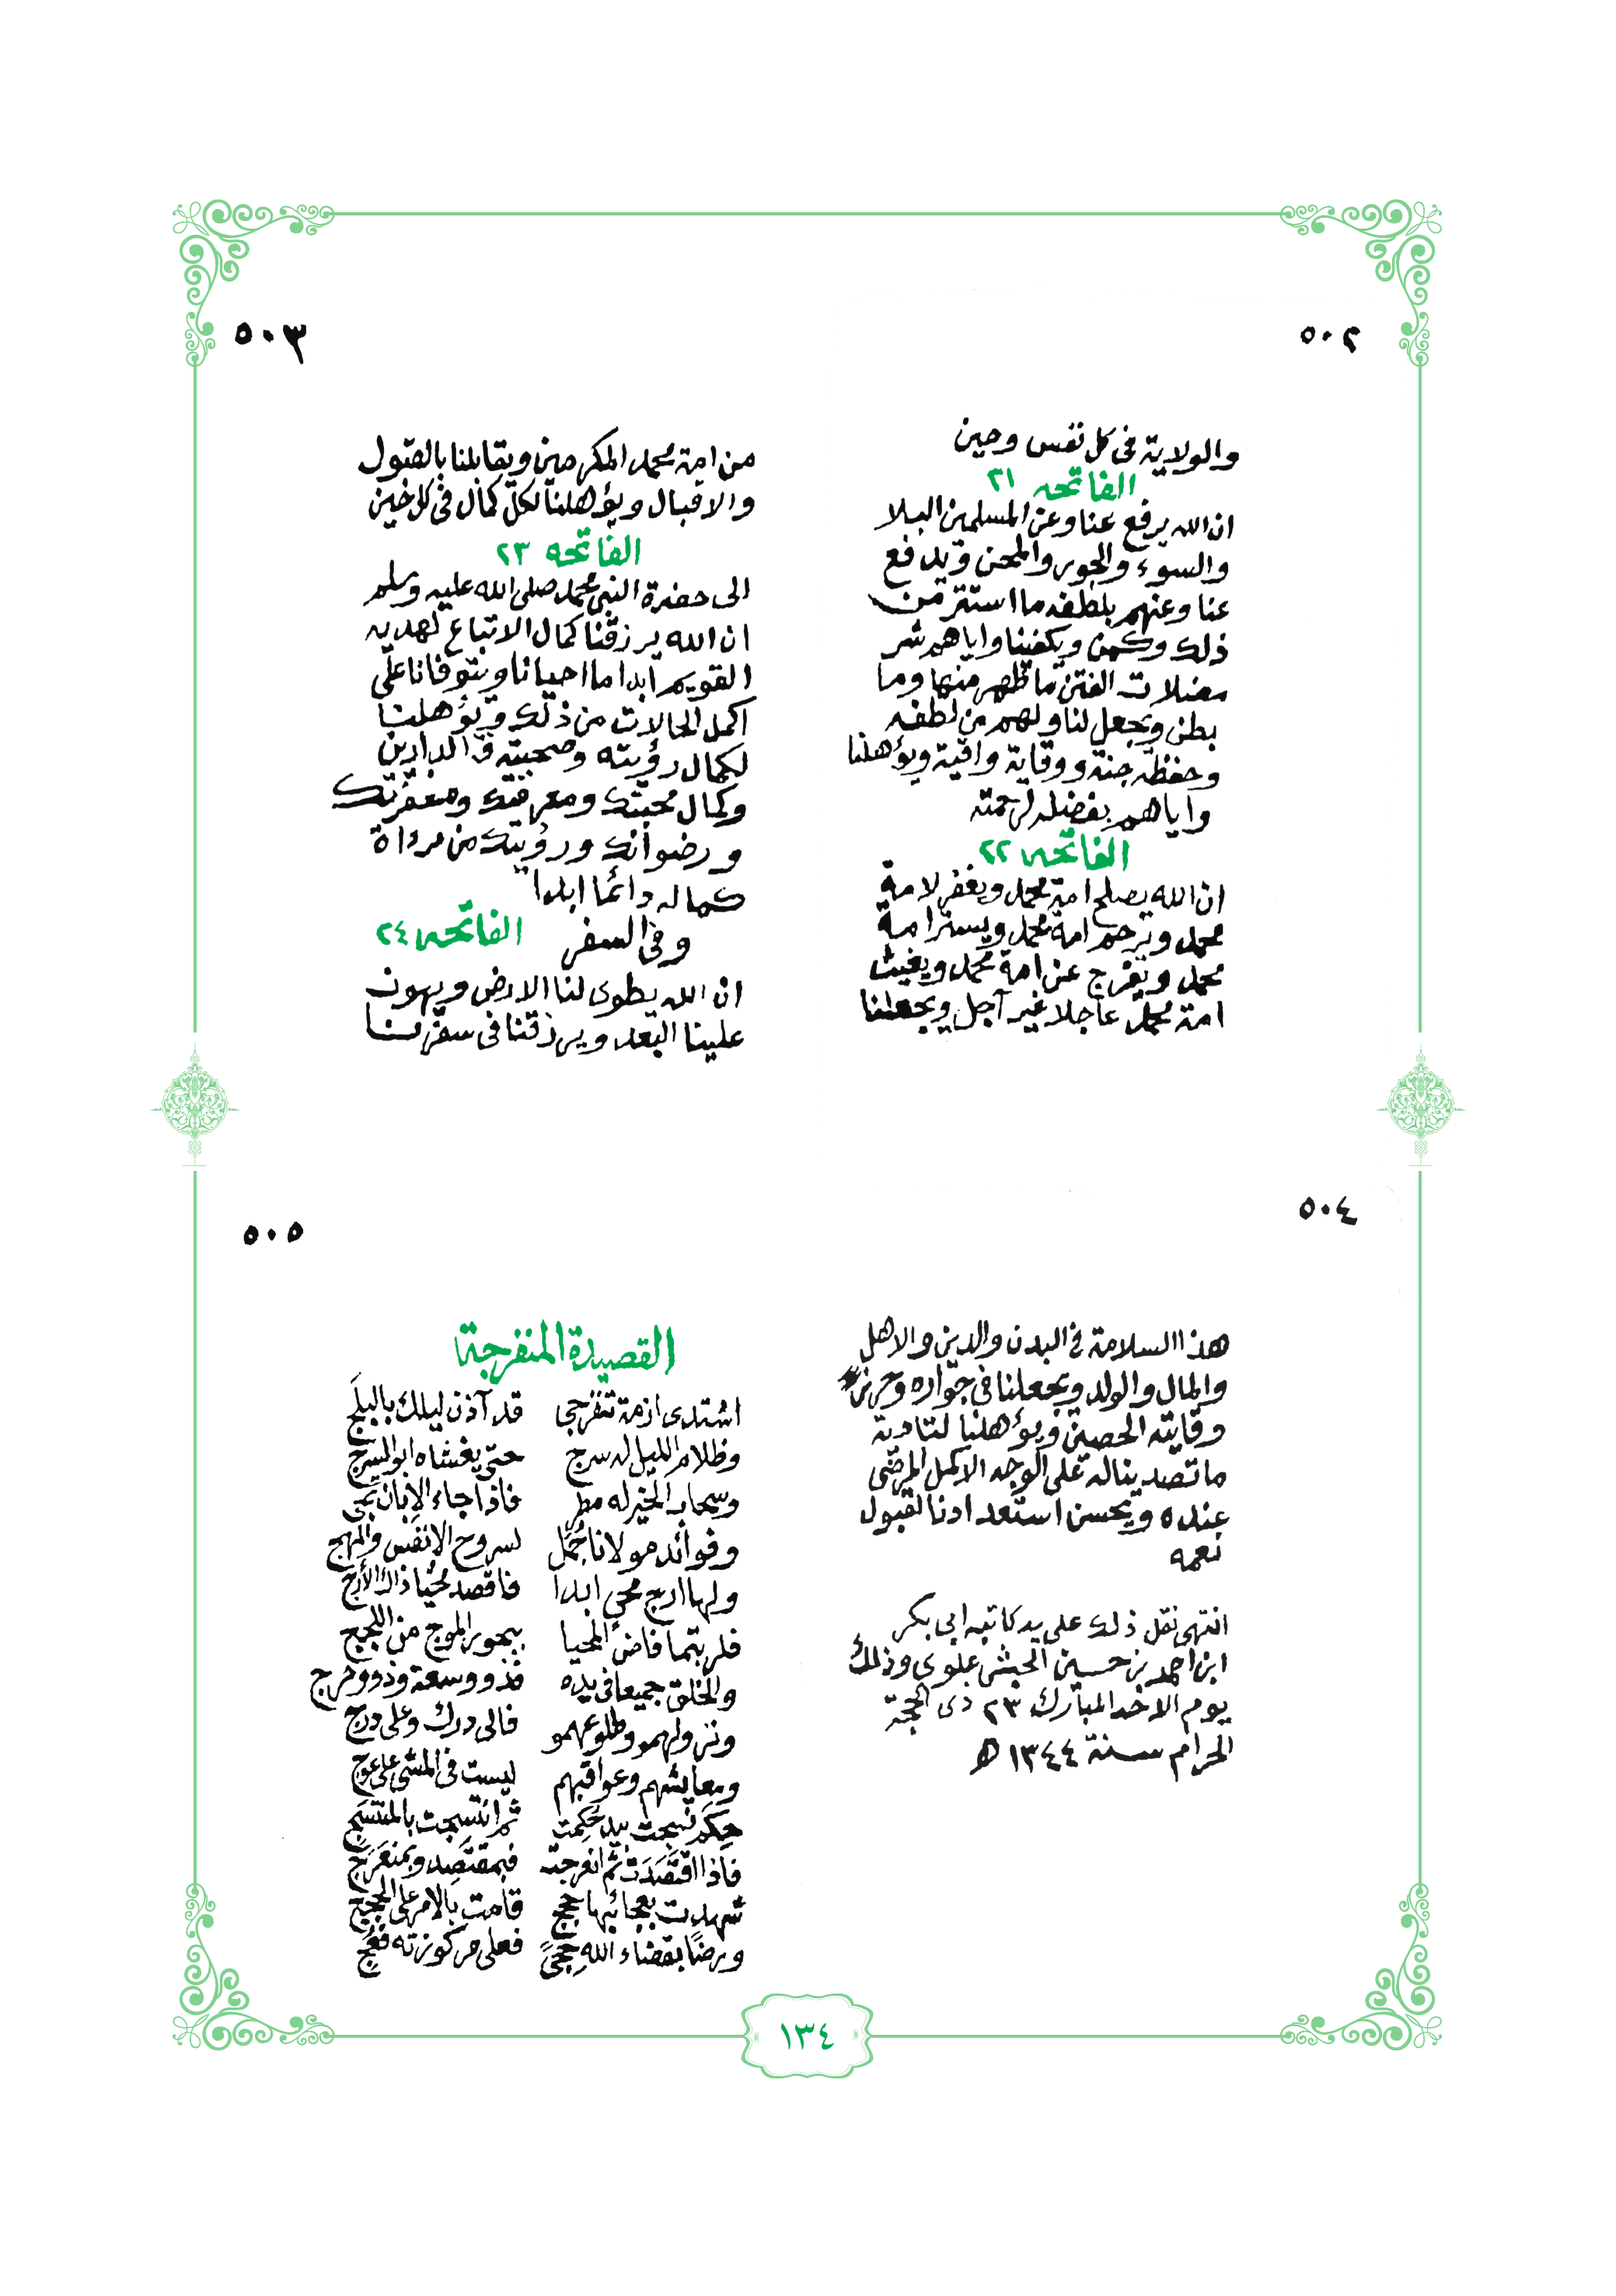 ٥٠٢
والولاية فى كل نفس وحين
الفاتحه ٢١
ان الله يرفع عنا وعن المسلمين البلا
والسوء والجور والمحن ويدفع
عنا وعنهم بلطفه ما استتر من
ذلك وكمن ويكفينا واياهم شر
معضلات الفتن ما ظهر منها وما
بطن ويجعل لنا ولهم من لطفه
وحفظه جنة ووقاية واقية ويؤهلنا
واياهم بفضله لرحمته
الفاتحه ٢٢
ان الله يصلح امة محمد ويغفر لامة
محمد ويرحم امة محمد ويستر امة
محمد ويفرج عن امة محمد ويغيث
امة محمد عاجلا غير آجل ويجعلنا
٥٠٣
من امة محمد المكرمين ويقابلنا بالقبول
والاقبال ويؤهلنا لكل كمال فى كل حين
الفاتحه ٢٣
الى حضرة النبى محمد صلى الله عليه وسلم
ان الله يرزقنا كمال الاتباع لهديه
القويم ابدا ما احيانا ويتوفانا على
اكمل الحالات من ذلك ويؤهلنا
لكمال رؤيته وصحبته فى الدارين
وكمال محبتك ومعرفتك ومغفرتك
ورضوانك ورؤيتك من مرءاة
كماله دائما ابدا
وفى السفر الفاتحه ٢٤
ان الله يطوى لنا الارض ويهون
علينا البعد ويرزقنا فى سفرنا
٥٠٤
هذا السلامة فى البدن والدين والاهل
والمال والولد ويجعلنا فى جواره وحرز
وقايته الحصين ويؤهلنا لتادية
ما تصدينا له على الوجه الاكمل المرضى
عنده ويحسن استعدادنا لقبول
نعمه
انتهى نقل ذلك على يد كاتبه ابى بكر
ابن احمد بن حسين الحبشى علوى وذلك
يوم الاحد المبارك ٢٣ ذى الحجة
الحرام سنة ١٣٤٤ ه
٥٠٥
القصيدة المنفرجة
اشتدى ازمة تنفرجى قد آذن ليلك بالبلج
وظلام الليل له سرج حتى يغشاه ابو السرج
وسحاب الخير له مطر فاذا جاء الإبان تجى
وفوائد مولانا جمل لسروح الانفس والمهج
ولها ارج محي ابدا فاقصد محيا ذاك الأرج
فلربتما فاض المحيا ببحور الموج من اللجج
والخلق جميعا فى يده فذوو سعة وذوو حرج
ونزولهمو وطلوعهمو فالى درك وعلى درج
ومعايشهم وعواقبهم ليست فى المشى على عوج
حِكم نسجت بيد حكمت ثم انتسجت بالمنتسج
فاذا اقتصدت ثم انعرجت فبمقتصد وبمنعرج
شهدت بعجائبها حجج قامت بالامر على الحجج
ورضًا بقضاء الله حجىً فعلى مركوزته فعج
١٣٤